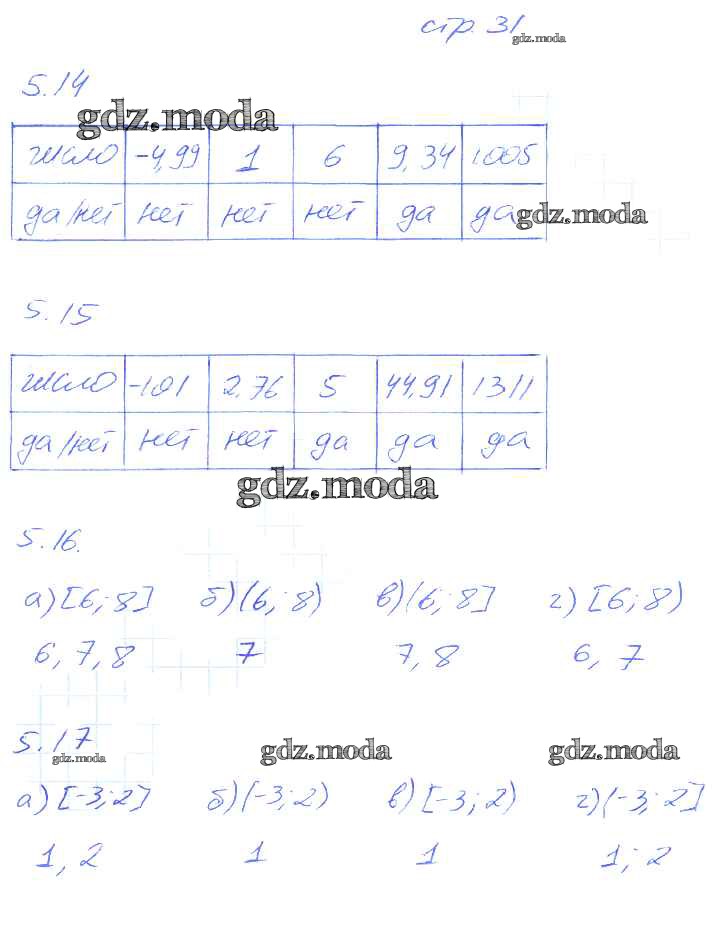 стр. 31
gdz.moda
5.14
gdz.moda
число -4,99 1 6 9,34 1005
да/нет нет нет нет да да
gdz.moda
5.15
число -101 2,76 5 44,91 1311
да/нет нет нет да да да
gdz.moda
5.16.
а) [6; 8] б) (6; 8) в) (6; 8] г) [6; 8)
6, 7, 8 7 7, 8 6, 7
5.17
gdz.moda gdz.moda gdz.moda
а) [-3; 2] б) (-3; 2) в) [-3; 2) г) (-3; 2]
1, 2 1 1 1; 2